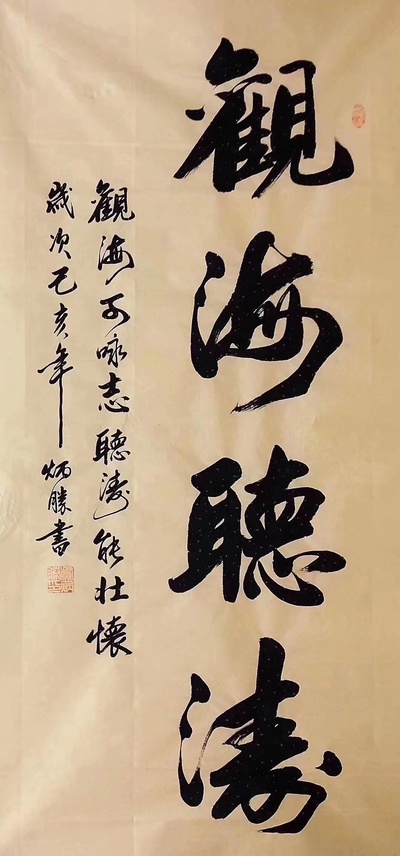 觀海聽濤
觀海可咏志聽濤能壯懷
歲次己亥年炳勝書